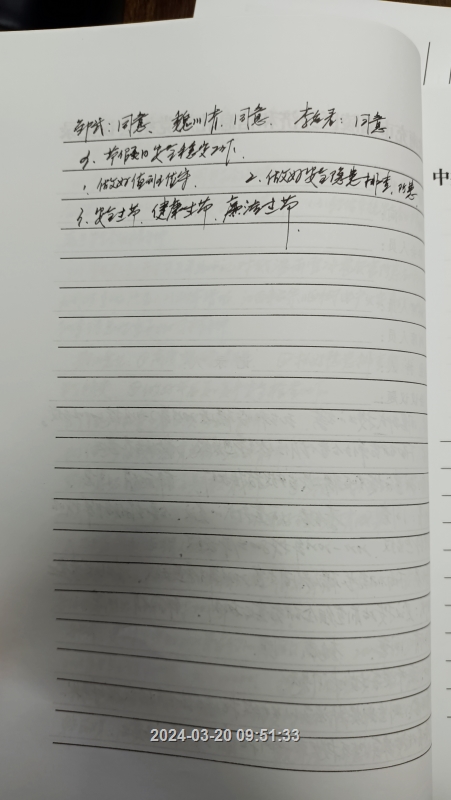 同意、魏川清:同意、李:同意.
4、节假日安全稳定工作.
1、做好值班值守 2、做好安全隐患排查、
3、安全过节、健康过节、廉洁过节.
中
2024-03-20 09:51:33